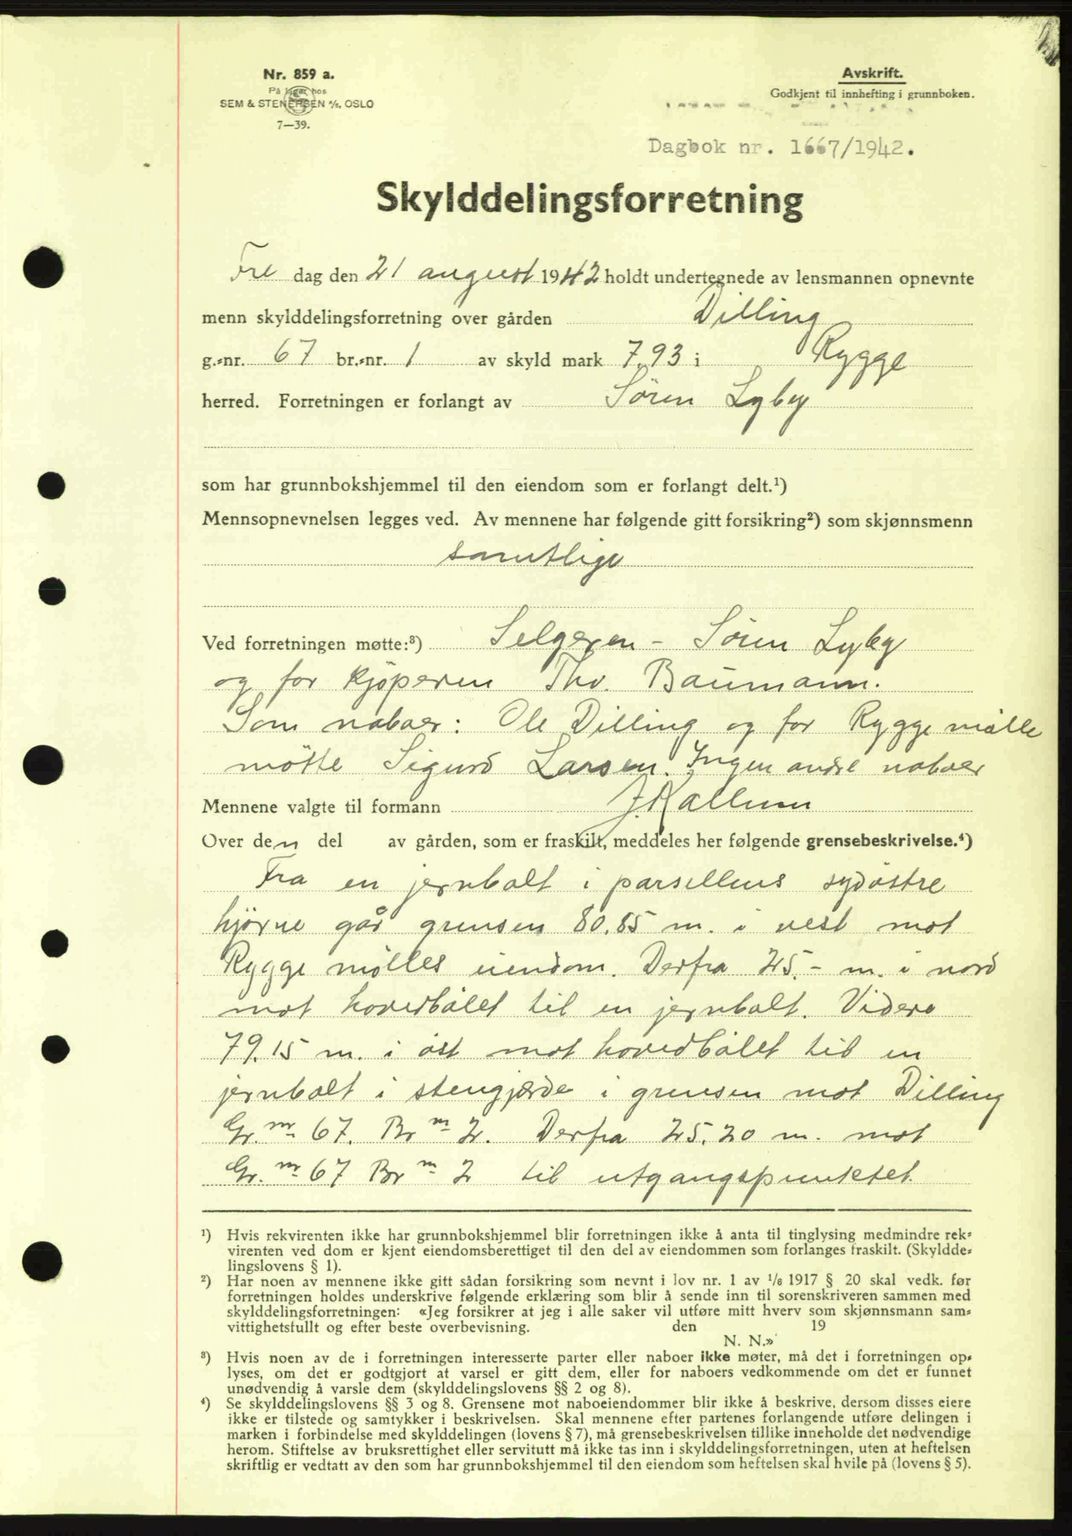 Nr. 859 a.
På lager hos
SEM & STENERSEN A/S. OSLO
7—39.
Avskrift.
Godkjent til innhefting i grunnboken.
Dagbok nr. 1667/1942.
Skylddelingsforretning
Fre dag den 21 august 1942 holdt undertegnede av lensmannen opnevnte
menn skylddelingsforretning over gården Dilling
g.-nr. 67 br.-nr. 1 av skyld mark 7,93 i Rygge
herred. Forretningen er forlangt av Sören Lyby
som har grunnbokshjemmel til den eiendom som er forlangt delt.¹)
Mennsopnevnelsen legges ved. Av mennene har følgende gitt forsikring²) som skjønnsmenn
samtlige
Ved forretningen møtte:³) Selgeren - Sören Lyby
og for kjöperen Thv. Baumann.
Som naboer: Ole Dilling og for Rygge mölle
mötte Sigurd Larsen. Ingen andre naboer
Mennene valgte til formann J. Kallum
Over den del av gården, som er fraskilt, meddeles her følgende grensebeskrivelse.⁴)
Fra en jernbolt i parsellens sydöstre
hjörne går grensen 80.85 m. i vest mot
Rygge mölles eiendom. Derfra 25.- m. i nord
mot hovedbölet til en jernbolt. Videre
79.15 m. i öst mot hovedbölet til en
jernbolt i stengjerde i grensen mot Dilling
Gr. nr 67. Br nr 2. Derfra 25.20 m. mot
Gr. nr 67 Br nr 2 til utgangspunktet.
¹) Hvis rekvirenten ikke har grunnbokshjemmel blir forretningen ikke å anta til tinglysing medmindre rek-
virenten ved dom er kjent eiendomsberettiget til den del av eiendommen som forlanges fraskilt. (Skyldde-
lingslovens § 1).
²) Har noen av mennene ikke gitt sådan forsikring som nevnt i lov nr. 1 av 1/6 1917 § 20 skal vedk. før
forretningen holdes underskrive følgende erklæring som blir å sende inn til sorenskriveren sammen med
skylddelingsforretningen: «Jeg forsikrer at jeg i alle saker vil utføre mitt hverv som skjønnsmann sam-
vittighetsfullt og efter beste overbevisning. den 19
N. N.»
³) Hvis noen av de i forretningen interesserte parter eller naboer ikke møter, må det i forretningen op-
lyses, om det er godtgjort at varsel er gitt dem, eller for naboers vedkommende om det er funnet
unødvendig å varsle dem (skylddelingslovens §§ 2 og 8).
⁴) Se skylddelingslovens §§ 3 og 8. Grensene mot naboeiendommer blir ikke å beskrive, dersom disses eiere
ikke er tilstede og samtykker i beskrivelsen. Skal mennene efter partenes forlangende utføre delingen i
marken i forbindelse med skylddelingen (lovens § 7), må grensebeskrivelsen tillike inneholde det nødvendige
herom. Stiftelse av bruksrettighet eller servitutt må ikke tas inn i skylddelingsforretningen, uten at heftelsen
skriftlig er vedtatt av den som har grunnbokshjemmel til den eiendom som heftelsen skal hvile på (lovens § 5).